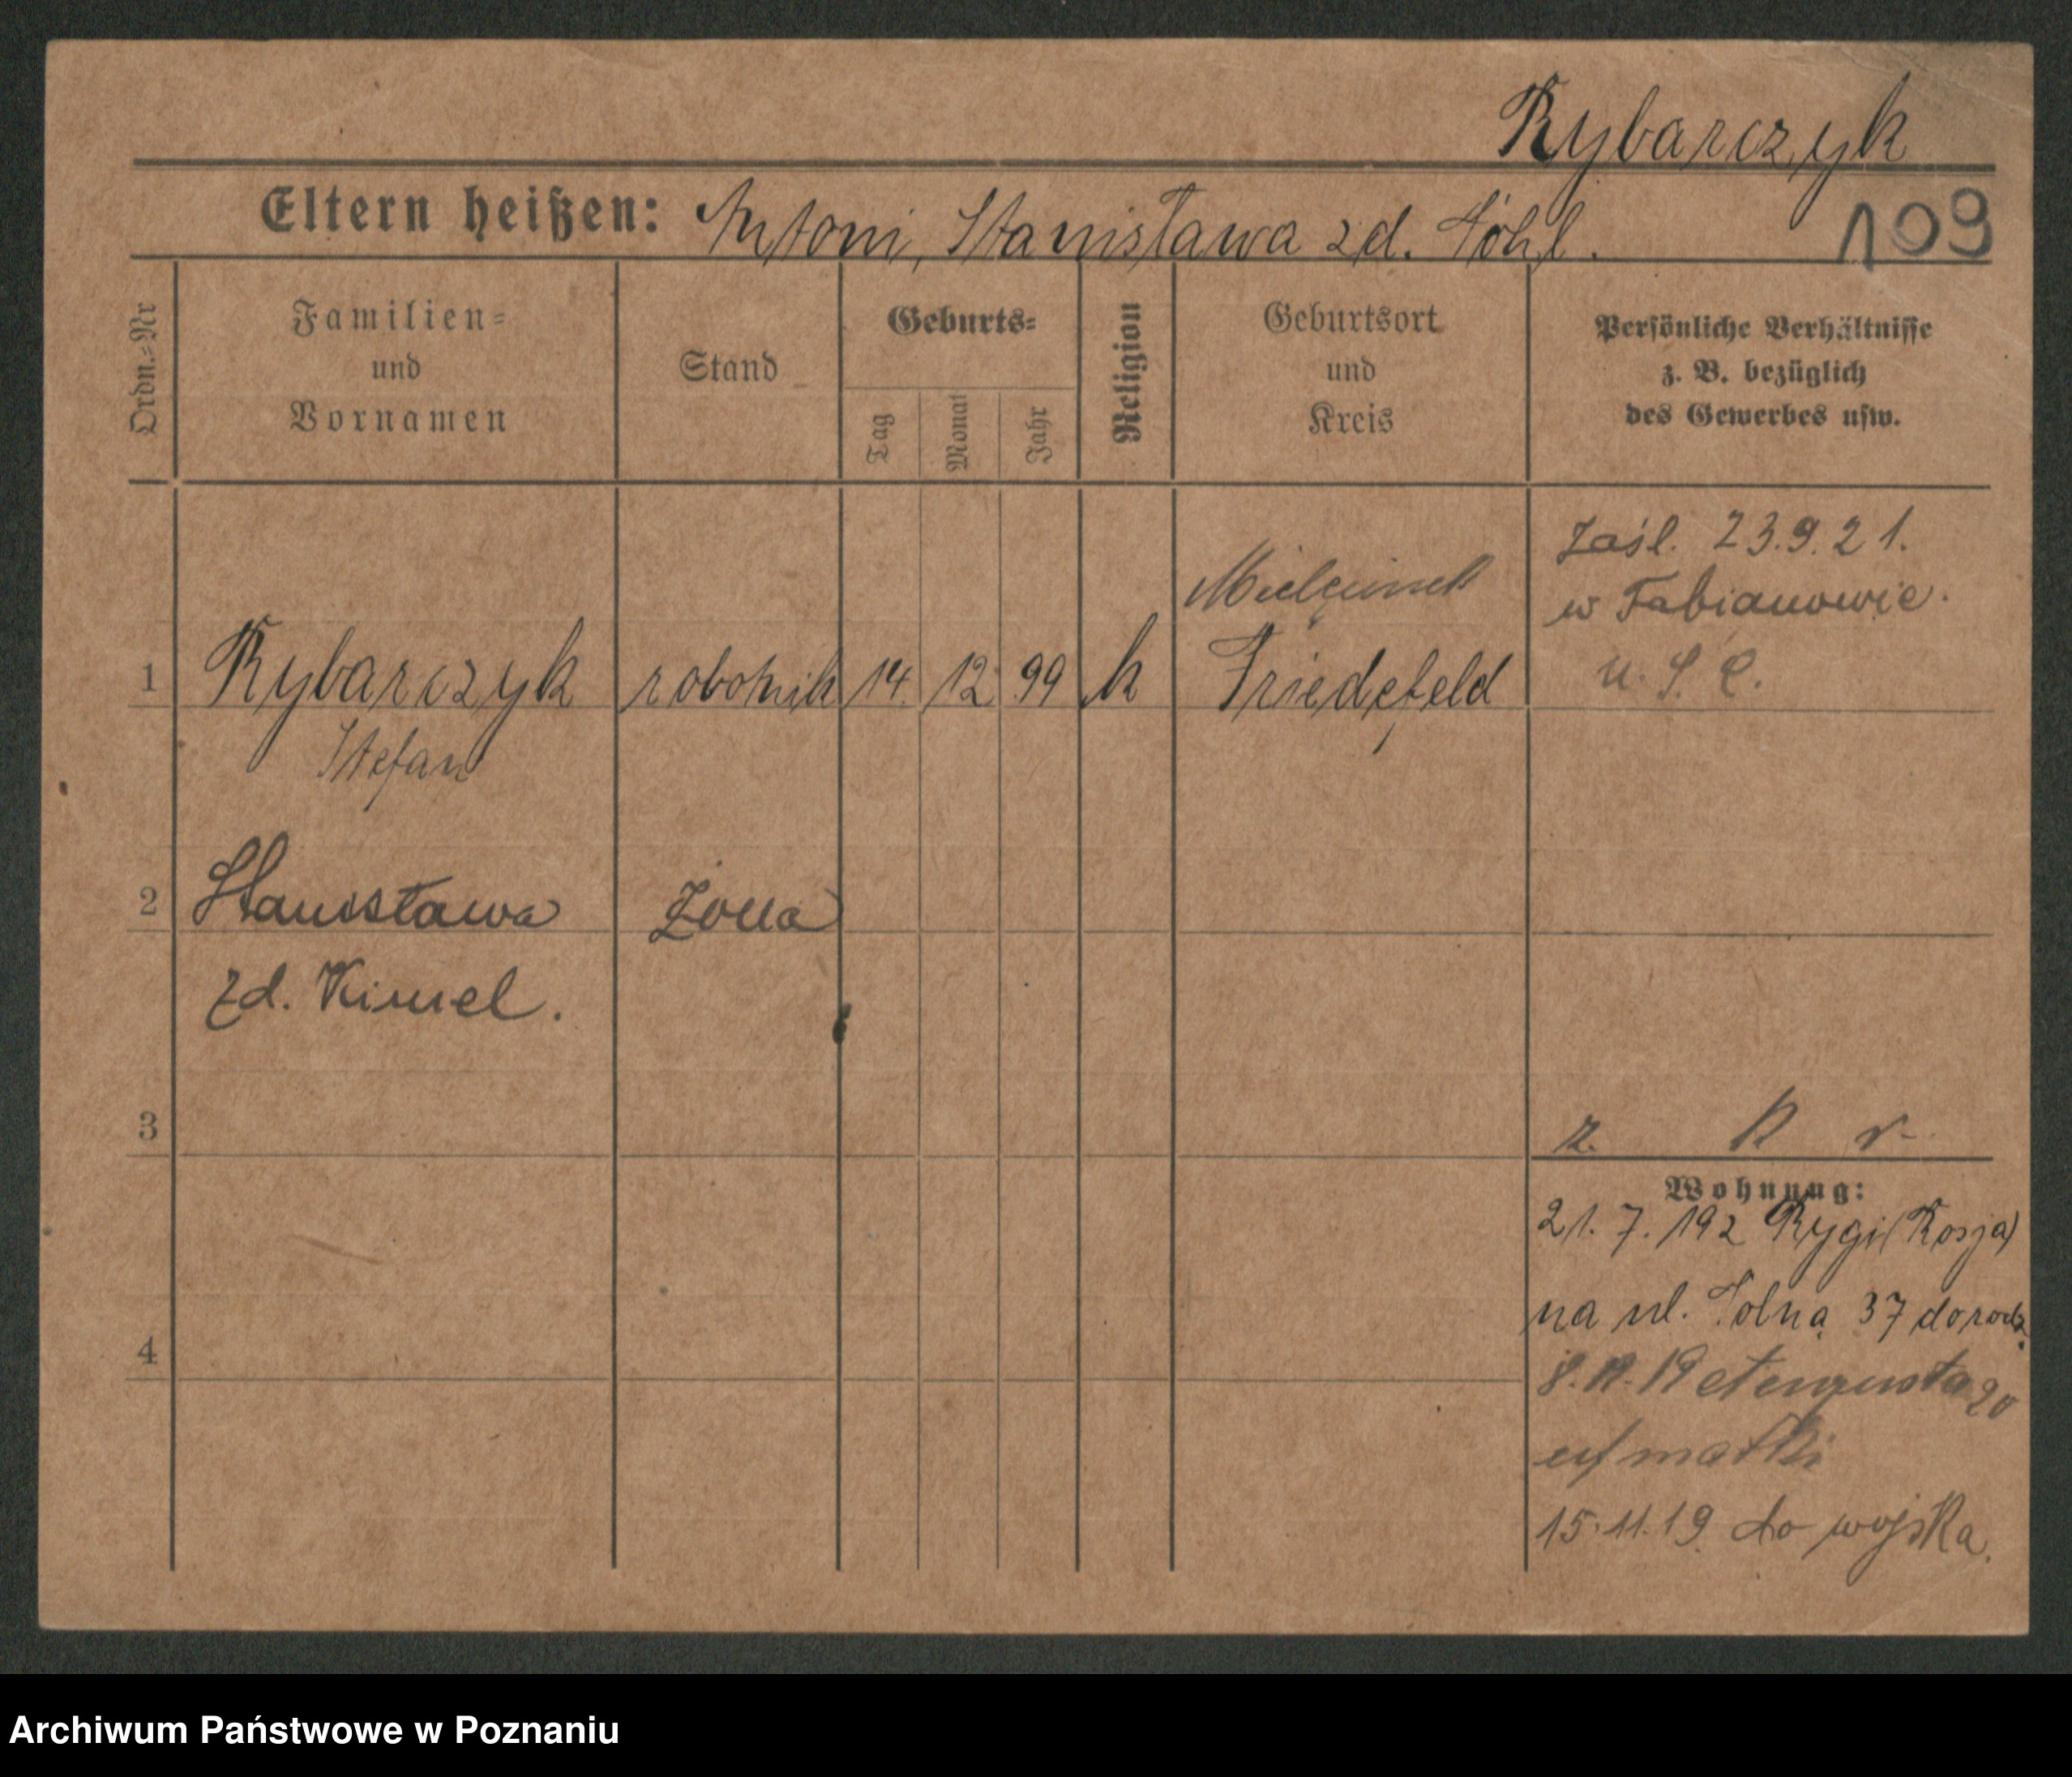 Rybarczyk
Eltern heißen: Antoni, Stanisława zd.
109
Ordn.-Nr
Familien-
und
Vornamen
Stand
Geburts-
Tag
Monat
Jahr
Religion
Geburtsort
und
Kreis
Persönliche Verhältnisse
z. B. bezüglich
des Gewerbes usw.
1
Rybarczyk
Stefan
robotnik
14. 12. 99
k
Friedefeld
Zaśl. 23.9.21.
w Fabianowie.
U. S. C.
2
Stanisława
zd. Kimel.
Żona
3
z. K r.
Wohnung:
21. 7. 192 Rygi (Rosja)
na ul. 37 do rodz.
4
matki
15.11.19. do wojska.
Archiwum Państwowe w Poznaniu